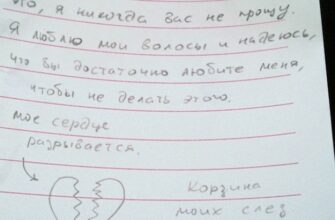 это, я никогда вас не прощу.
Я люблю мои волосы и надеюсь,
что вы достаточно любите меня,
чтобы не делать этого.
мое сердце
разрывается.
Корзина
моих слез